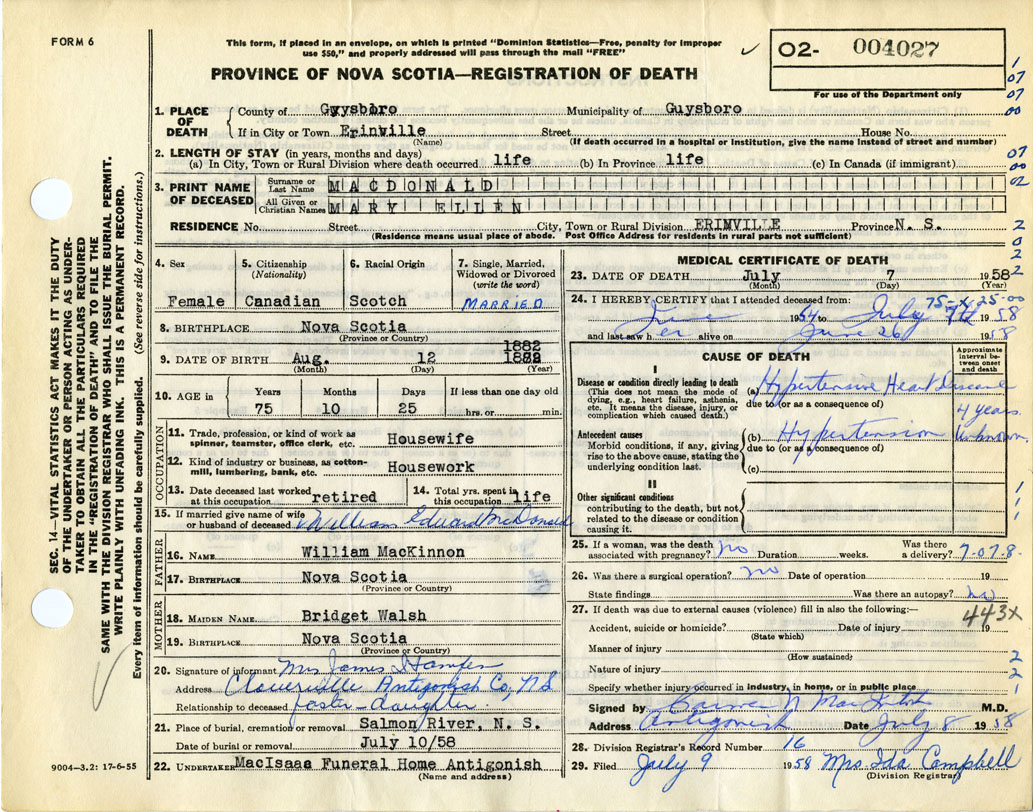 FORM 6
This form, if placed in an envelope, on which is printed "Dominion Statistics—Free, penalty for improper
use $50," and properly addressed will pass through the mail "FREE"
✓ 02- 004027
For use of the Department only
PROVINCE OF NOVA SCOTIA—REGISTRATION OF DEATH
1
07
07
00
1. PLACE OF DEATH
County of Guysboro Municipality of Guysboro
If in City or Town Erinville Street House No.
(Name) (If death occurred in a hospital or institution, give the name instead of street and number)
2. LENGTH OF STAY (in years, months and days)
(a) In City, Town or Rural Division where death occurred life (b) In Province life (c) In Canada (if immigrant)
07
00
02
3. PRINT NAME OF DECEASED
Surname or Last Name MACDONALD
All Given or Christian Names MARY ELLEN
RESIDENCE No. Street City, Town or Rural Division ERINVILLE Province N. S.
(Residence means usual place of abode. Post Office Address for residents in rural parts not sufficient)
2
0
2
2
SEC. 14—VITAL STATISTICS ACT MAKES IT THE DUTY
OF THE UNDERTAKER OR PERSON ACTING AS UNDER-
TAKER TO OBTAIN ALL THE PARTICULARS REQUIRED
IN THE "REGISTRATION OF DEATH" AND TO FILE THE
SAME WITH THE DIVISION REGISTRAR WHO SHALL ISSUE THE BURIAL PERMIT.
WRITE PLAINLY WITH UNFADING INK. THIS IS A PERMANENT RECORD.
Every item of information should be carefully supplied. (See reverse side for instructions.)
4. Sex
Female
5. Citizenship
(Nationality)
Canadian
6. Racial Origin
Scotch
7. Single, Married,
Widowed or Divorced
(write the word)
MARRIED
8. BIRTHPLACE Nova Scotia
(Province or Country)
1882
9. DATE OF BIRTH Aug. 12
(Month) (Day) (Year)
10. AGE in
Years Months Days If less than one day old
75 10 25 hrs. or min.
OCCUPATION
11. Trade, profession, or kind of work as
spinner, teamster, office clerk, etc. Housewife
12. Kind of industry or business, as cotton-
mill, lumbering, bank, etc. Housework
13. Date deceased last worked
at this occupation retired
14. Total yrs. spent in
this occupation life
15. If married give name of wife
or husband of deceased William Edward McDonald
FATHER
16. NAME William MacKinnon
17. BIRTHPLACE Nova Scotia
(Province or Country)
MOTHER
18. MAIDEN NAME Bridget Walsh
19. BIRTHPLACE Nova Scotia
(Province or Country)
20. Signature of informant Mrs James
Address Antigonish Co, N.S.
Relationship to deceased foster-daughter.
21. Place of burial, cremation or removal Salmon/River, N. S.
Date of burial or removal July 10/58
22. UNDERTAKER MacIsaac Funeral Home Antigonish
(Name and address)
9004—3.2: 17-6-55
MEDICAL CERTIFICATE OF DEATH
23. DATE OF DEATH July 7 1958
(Month) (Day) (Year)
24. I HEREBY CERTIFY that I attended deceased from: 75-X 25-00
June 1954 to July 7th 1958
and last saw her alive on June 26 1958
CAUSE OF DEATH
Approximate
interval be-
tween onset
and death
I
Disease or condition directly leading to death
(This does not mean the mode of
dying, e.g., heart failure, asthenia,
etc. It means the disease, injury, or
complication which caused death.)
(a) Hypertensive Heart Disease
due to (or as a consequence of) 4 years.
Antecedent causes
Morbid conditions, if any, giving
rise to the above cause, stating the
underlying condition last.
(b) Hypertension Unknown
due to (or as a consequence of)
(c)
II
Other significant conditions
contributing to the death, but not
related to the disease or condition
causing it.
1
1
1
25. If a woman, was the death
associated with pregnancy? no Duration weeks. Was there
a delivery? 7-07.8.
26. Was there a surgical operation? no Date of operation 19
State findings Was there an autopsy? no
27. If death was due to external causes (violence) fill in also the following:—
443X
Accident, suicide or homicide? Date of injury 19
(State which)
Manner of injury
(How sustained)
Nature of injury
Specify whether injury occurred in industry, in home, or in public place
2
2
1
Signed by M.D.
Address Antigonish Date July 8 1958
28. Division Registrar's Record Number 16
29. Filed July 9 1958 Mrs Ida Campbell
(Division Registrar)